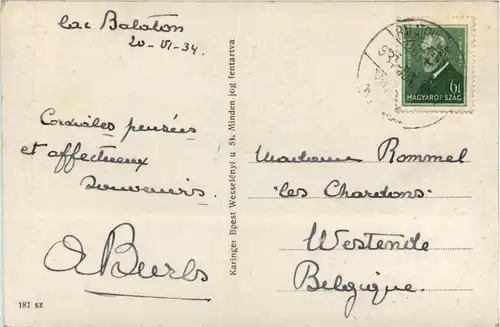 Lac Balaton
20-VI-34
Cordiales pensées
et affectueux
souvenirs.
Karinger Bpest Wesselényi u St. Minden jog fentartva
187 sz
6f
MAGYARORSZÁG
Madame Rommel
"les Chardons"
Westende
Belgique.